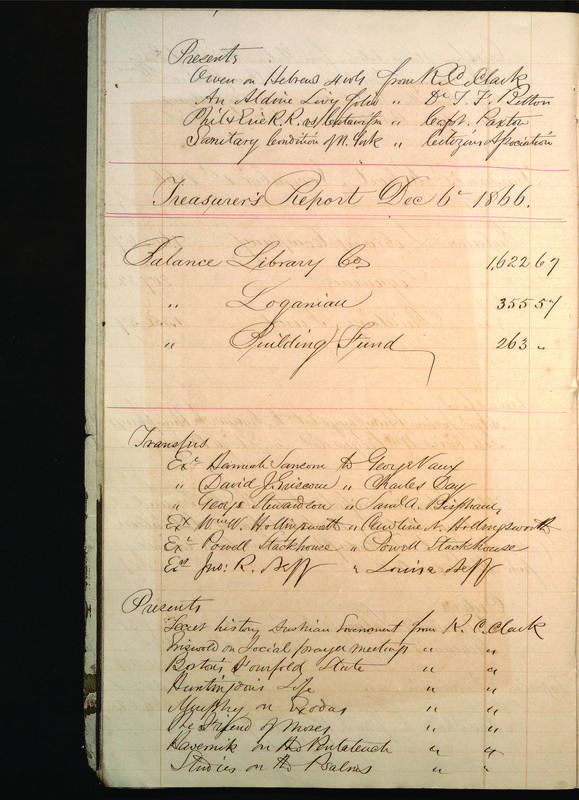 Presents
Owen on Hebrews 4 vols from R. C. Clark
An Aldine Livy folio " Dr T. F. Betton
Phil & Erie R. R. vs Catawissa " Capt. Paxton
Sanitary Condition of N. York " Citizens Association
Treasurer's Report Dec 6th 1866.
Balance Library Co 1,622 67
" Loganian 355 57
" Building Fund 263 "
Transfers
Exr Hannah Sansom to George Vaux
" David J. Griscom " Charles Day
" George Stewardson " Saml A. Bispham
Exx Wm H. Hollingsworth " Hollingsworth
Exr Powell Stackhouse " Powell Stackhouse
Exs Jno: R. Neff " Louisa Neff
Presents
Secret history Austrian Government from R. C. Clark
Griswold on Social prayer meetings " "
Boston's Fourfold State " "
Huntingdon's Life " "
Murphy on Exodus " "
The Friend of Moses " "
Havernik on the Pentateuch " "
Studies on the Psalms " "